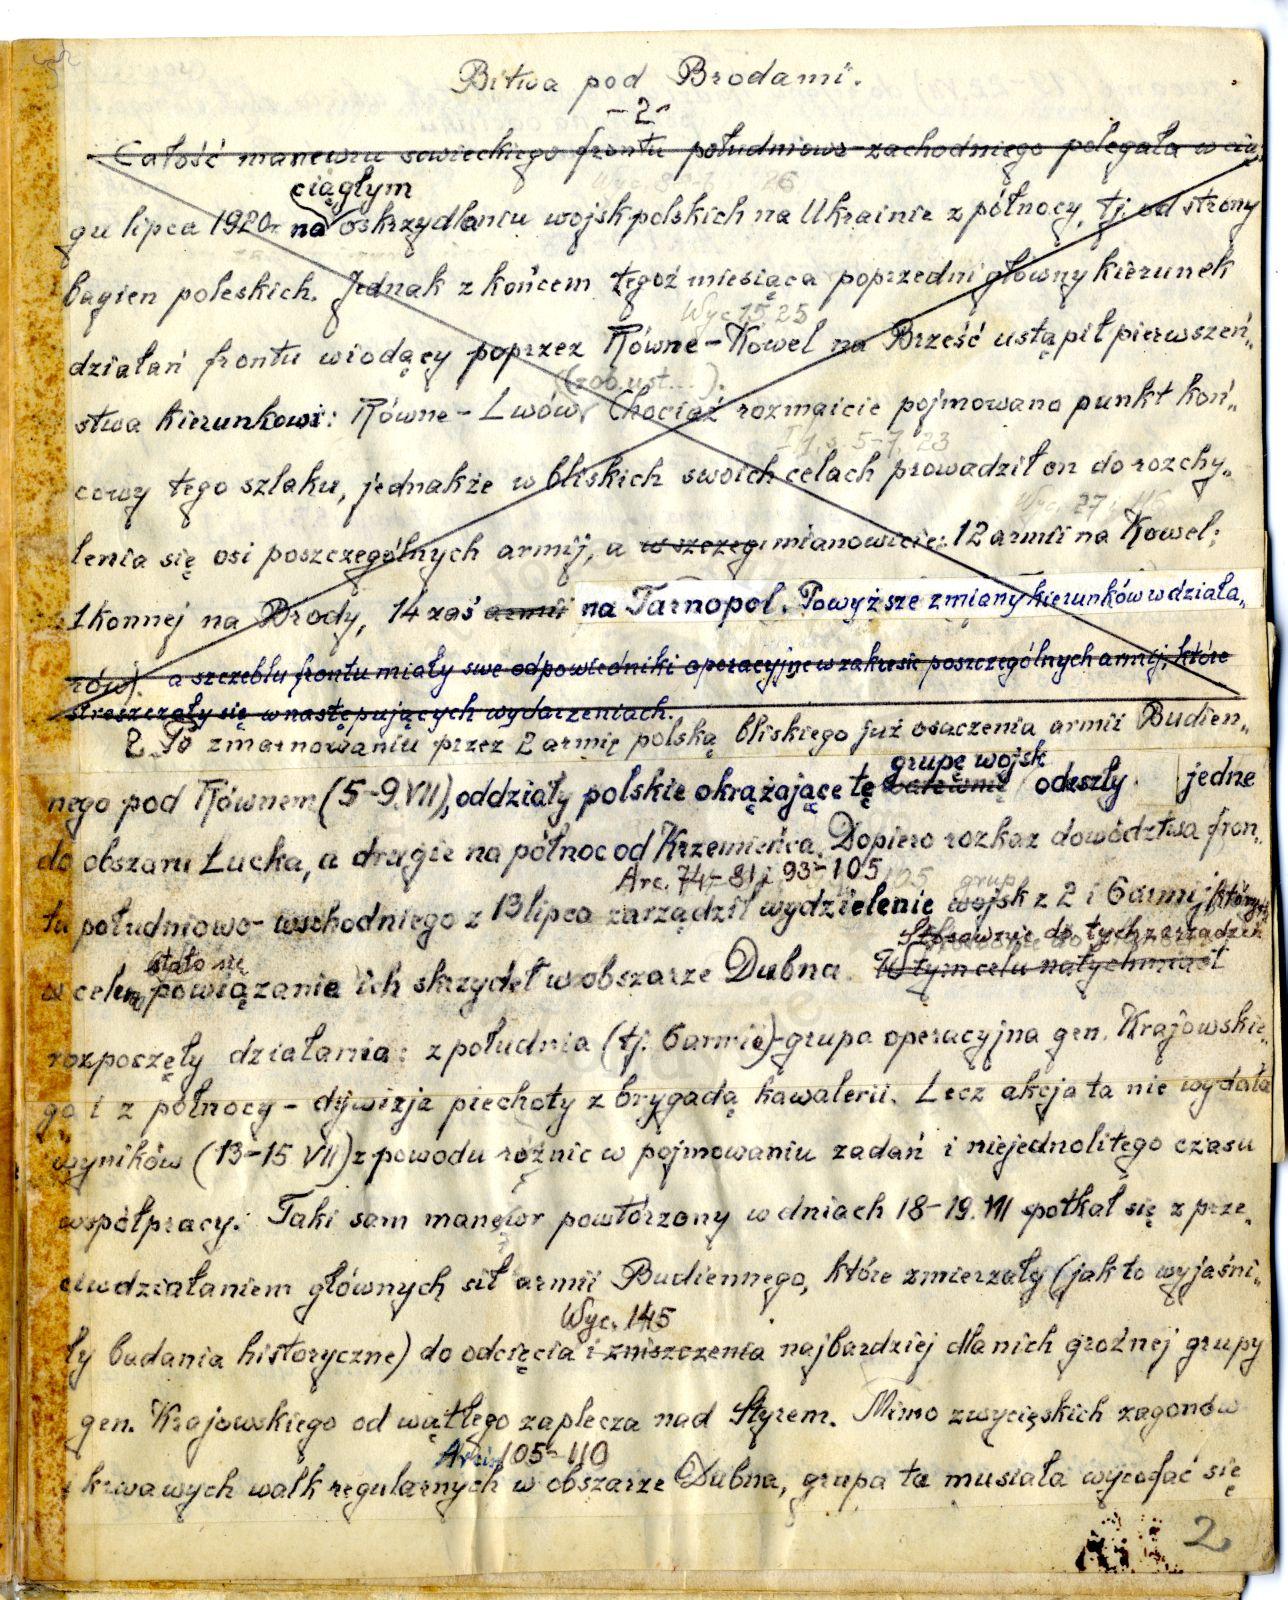 Bitwa pod Brodami.
-2-
Całość manewru sowieckiego frontu południowo-zachodniego polegała w cią„
ciągłym
gu lipca 1920r. na oskrzydlaniu wojsk polskich na Ukrainie z północy, tj. od strony
bagien poleskich. Jednak z końcem tegoż miesiąca poprzedni główny kierunek
Wyc 15 25
działań frontu wiodący poprzez Równe-Kowel na Brześć ustąpił pierwszeń„
(zob. ust...).
stwa kierunkowi: Równe - Lwów. Chociaż rozmaicie pojmowano punkt koń„
I 1, s. 5-7, 23
cowy tego szlaku, jednakże w bliskich swoich celach prowadził on do rozchy„
Wyc. 27 i
lenia się osi poszczególnych armij, a w szczeg. mianowicie: 12 armii na Kowel;
1 Konnej na Brody, 14 zaś armii na Tarnopol. Powyższe zmiany kierunków w działa„
rów). a szczeblu frontu miały swe odpowiedniki operacyjne w zakresie poszczególnych armij, które
streszczały się w następujących wydarzeniach.
2. Po zmarnowaniu przez 2 armię polską bliskiego już osaczenia armii Budien„
grupę wojsk
nego pod Równem (5-9.VII), oddziały polskie okrążające tę odeszły jedne
do obszaru Łucka, a drugie na północ od Krzemieńca. Dopiero rozkaz dowództwa fron„
Arc. 74-81 i 93-105
tu południowo-wschodniego z 13 lipca zarządził wydzielenie wojsk z 2 i 6 armij, których
stało się
Stosownie do tych zarządzeń
w celem powiązanie ich skrzydeł w obszarze Dubna. W tym celu natychmiast
rozpoczęły działania: z południa (tj. 6 armii)-grupa operacyjna gen. Krajowskie„
go i z północy - dywizja piechoty z brygadą kawalerii. Lecz akcja ta nie wydała
wyników (13-15 VII) z powodu różnic w pojmowaniu zadań i niejednolitego czasu
współpracy. Taki sam manewr powtórzony w dniach 18-19. VII spotkał się z prze„
ciwdziałaniem głównych sił armii Budiennego, które zmierzały (jak to wyjaśni„
Wyc. 145
ły badania historyczne) do odcięcia i zniszczenia najbardziej dla nich groźnej grupy
gen. Krajowskiego od wątłego zaplecza nad Styrem. Mimo zwycięskich zagonów
105-110
i krwawych walk regularnych w obszarze Dubna, grupa ta musiała wycofać się
2